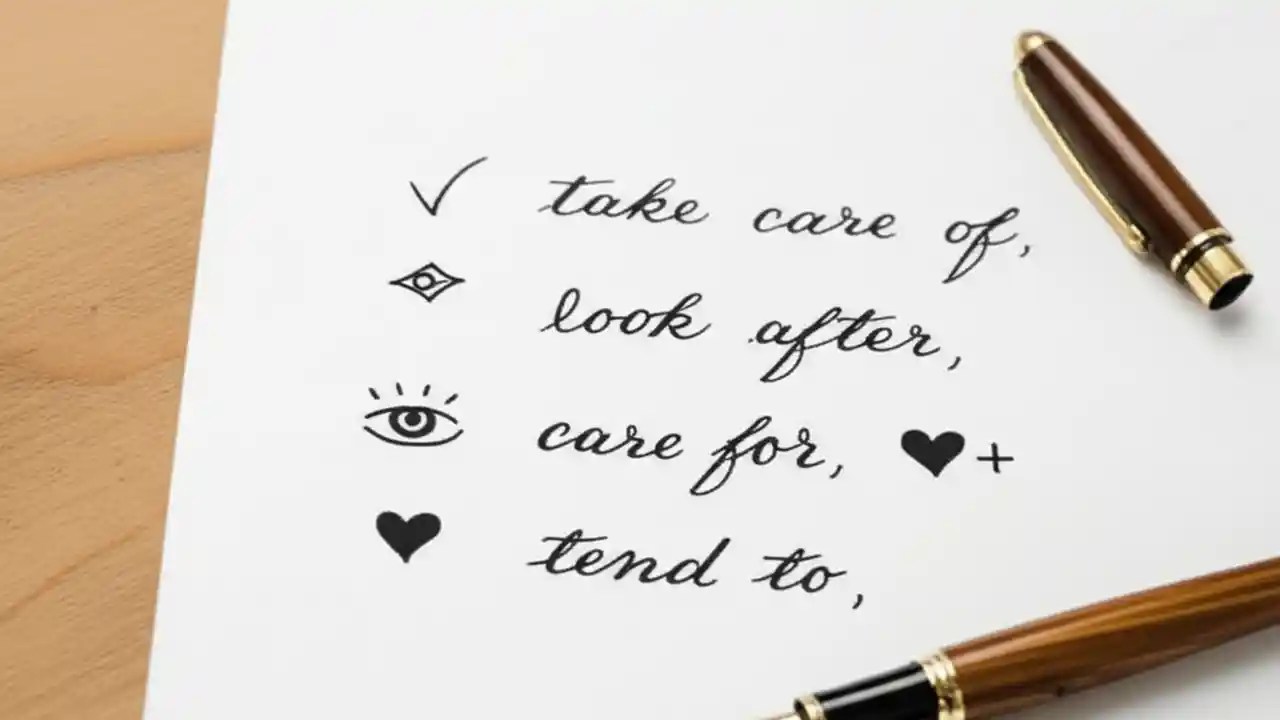 take care of,
look after,
care for,
tend to,